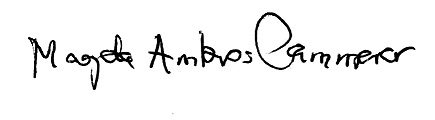 Magda Ambros Cammerer